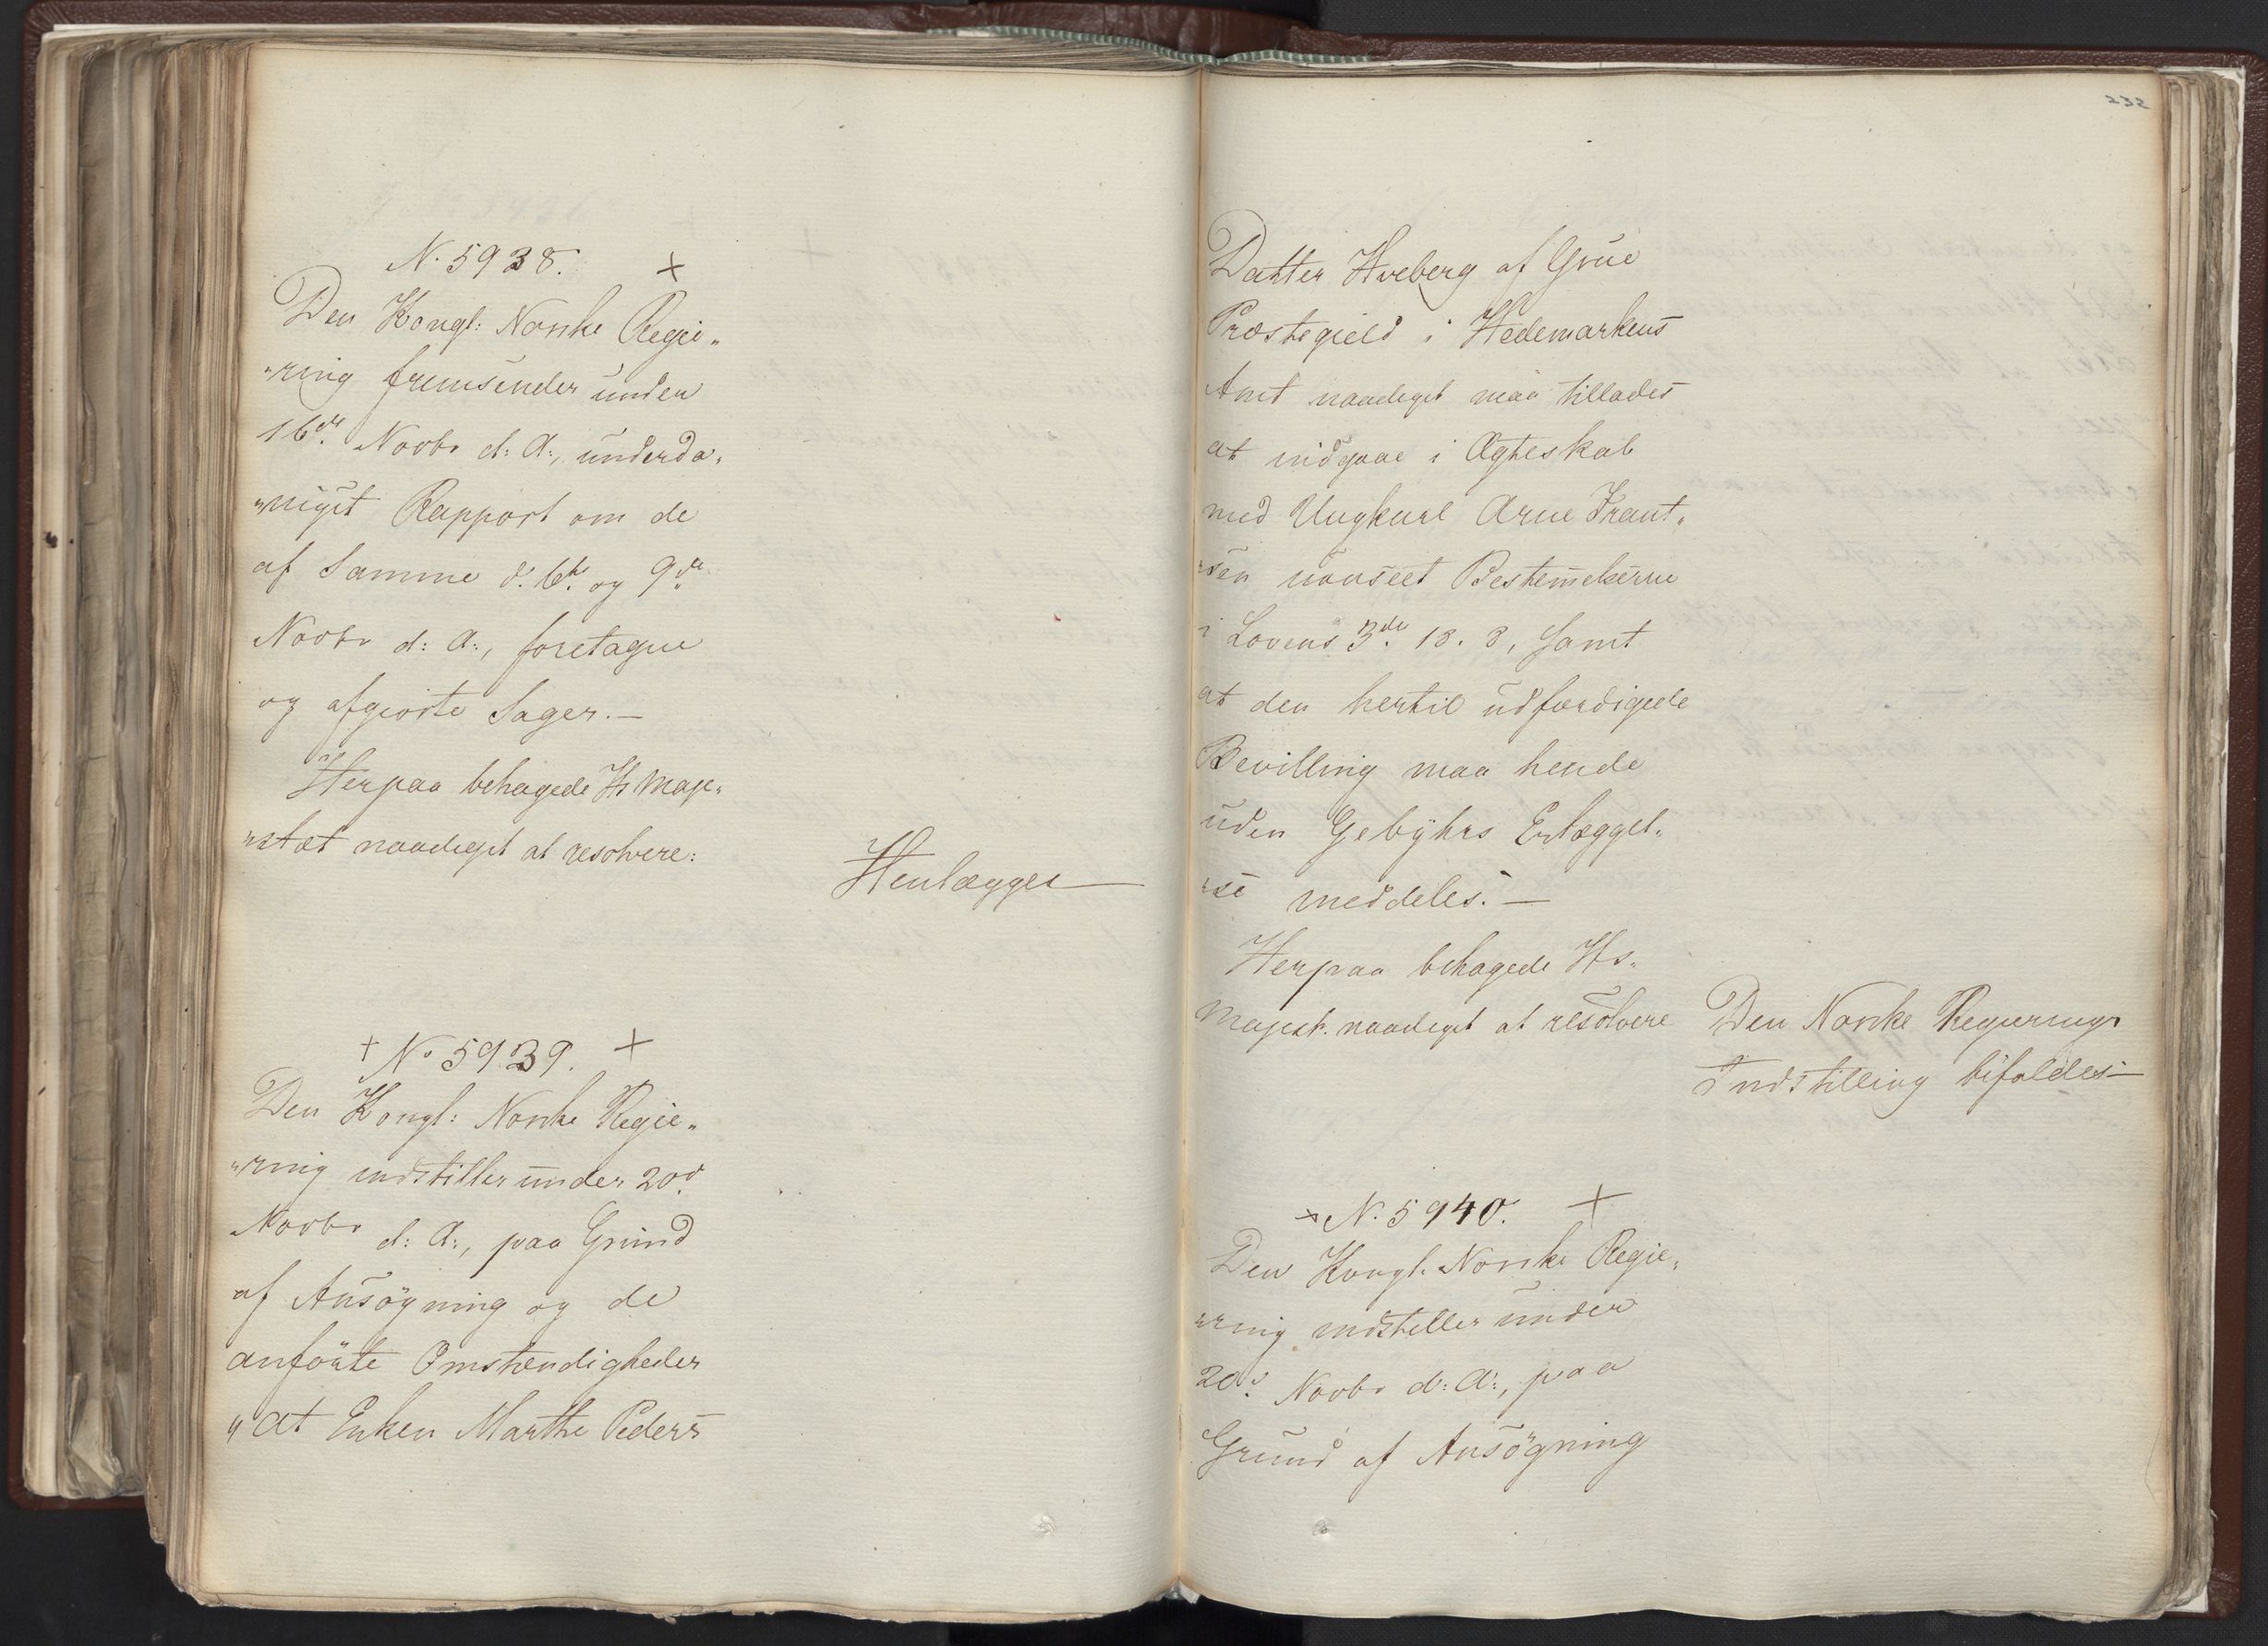 N. 5938. +
Den Kongl: Norske Regie„
„ring fremsender under
16de Novbr d: A:, underda„
„nigst Rapport om de
af Samme d. 6te og 9de
Novbr d: A:, foretagne
og afgiorte Sager.—
Herpaa behagede Hs Maje„
„stæt naadigst at resolvere:
Henlægges—
+ No 5939. +
Den Kongl: Norske Regie„
„ring indstiller under 20de
Novbr d: A:, paa Grund
af Ansögning og de
anförte Omstændigheder
„at Enken Marthe Peders
232
Datter Hveberg af Grue
Præstegield i Hedemarkens
Amt naadigst maa tillades
at indgaae i Ægteskab
med Ungkarl Arne Frant„
„sen uanseet Bestemelserne
i Lovens 3die 18. 8, samt
at den hertil udfærdigede
Bevilling maa hende
uden Gebÿhrs Erlæggel„
„se meddeles.—
Herpaa behagede Hs„
Majest. naadigst at resolvere
Den Norske Regierings
Indstilling bifaldes—
+ N. 5940. +
Den Kongl. Norske Regie„
„ring indstiller under
20de Novbr d: A:, paa
Grund af Ansögning